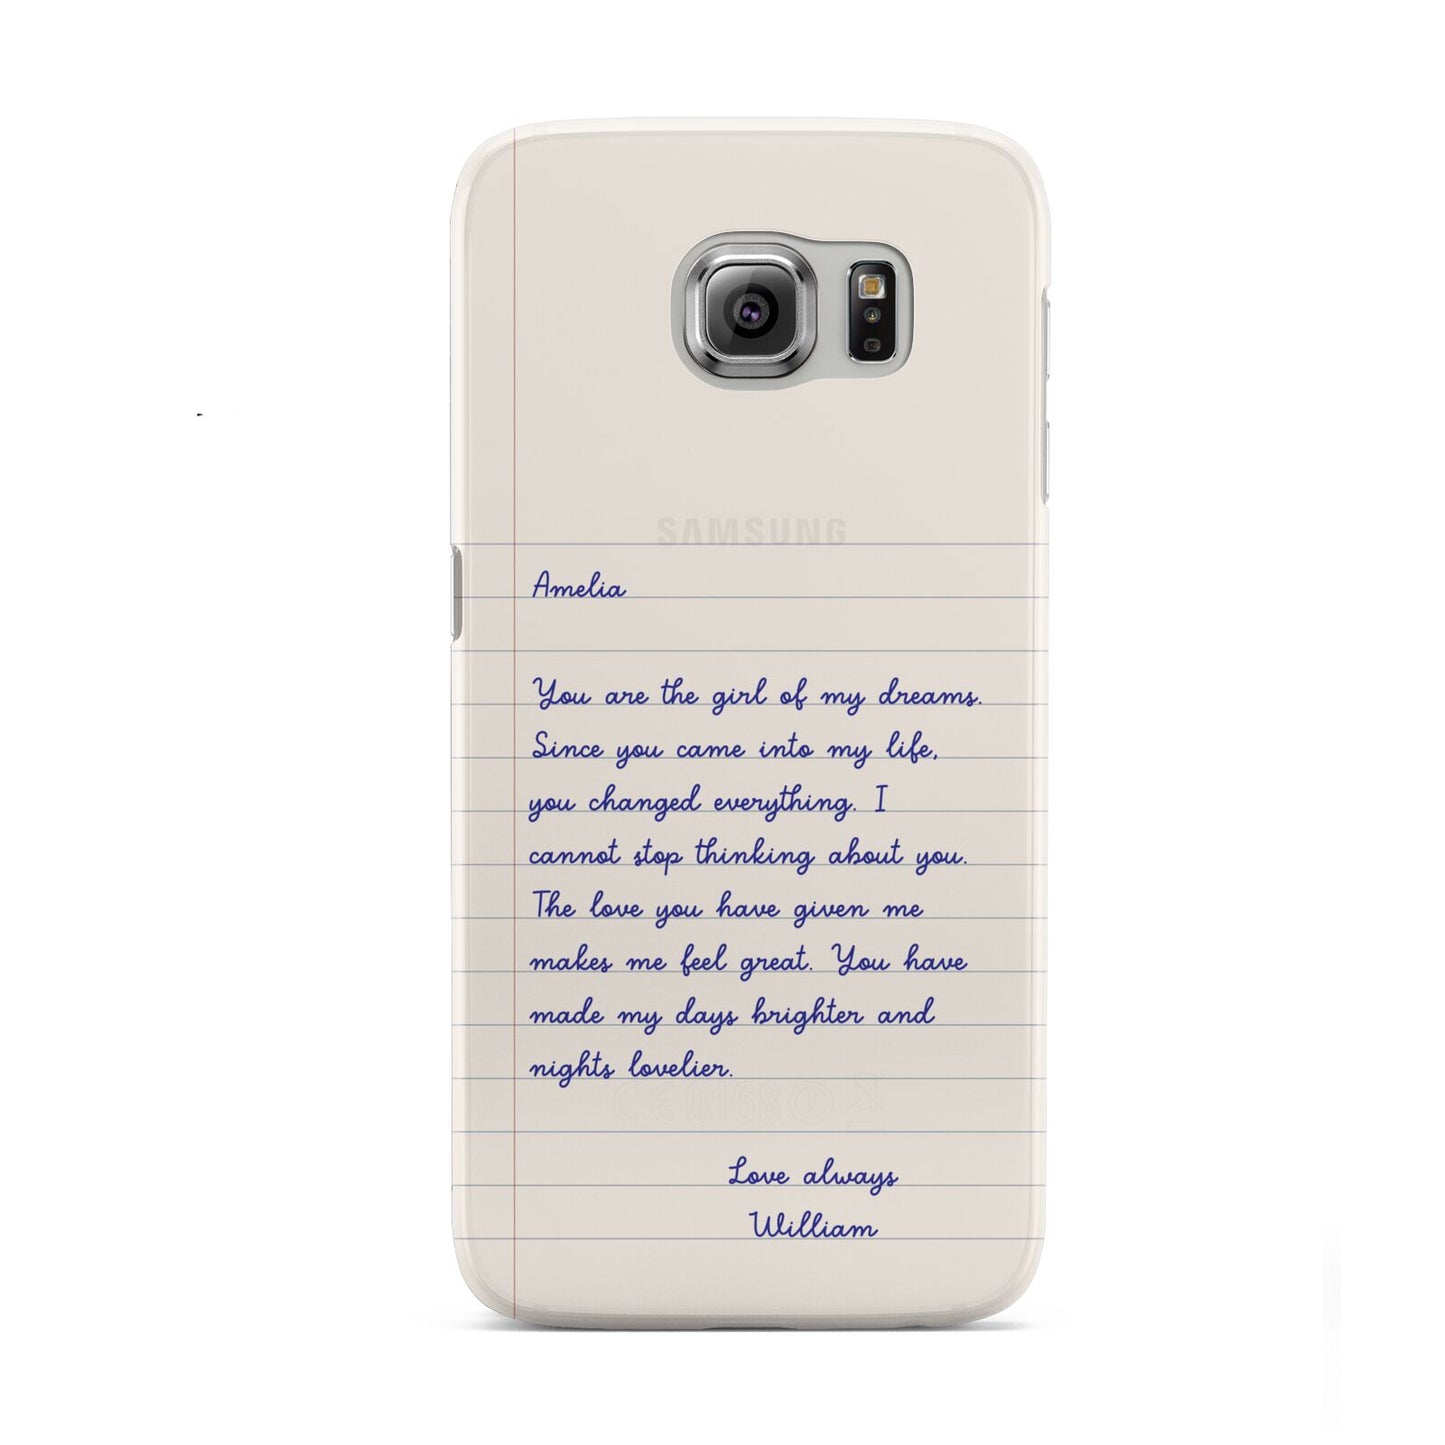 SAMSUNG
Amelia
You are the girl of my dreams.
Since you came into my life,
you changed everything. I
cannot stop thinking about you.
The love you have given me
makes me feel great. You have
made my days brighter and
nights lovelier.
CE0168
Love always
William